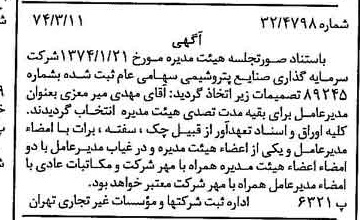 شماره ۳۲/۴۷۹۸ ۷۴/۳/۱۱
آگهی
باستناد صورتجلسه هیئت مدیره مورخ ۱۳۷۴/۱/۲۱ شرکت
سرمایه گذاری صنایع پتروشیمی سهامی عام ثبت شده بشماره
۸۹۲۴۵ تصمیمات زیر اتخاذ گردید: آقای مهدی میر معزی بعنوان
مدیرعامل برای بقیه مدت تصدی هیئت مدیره انتخاب گردیدند.
کلیه اوراق و اسناد تعهدآور از قبیل چک ، سفته ، برات با امضاء
مدیرعامل و یکی از اعضاء هیئت مدیره و در غیاب مدیرعامل با دو
امضاء اعضاء هیئت مدیره همراه با مهر شرکت و مکاتبات عادی با
امضاء مدیرعامل همراه با مهر شرکت معتبر خواهد بود.
پ ۶۳۲۱ اداره ثبت شرکتها و مؤسسات غیر تجاری تهران